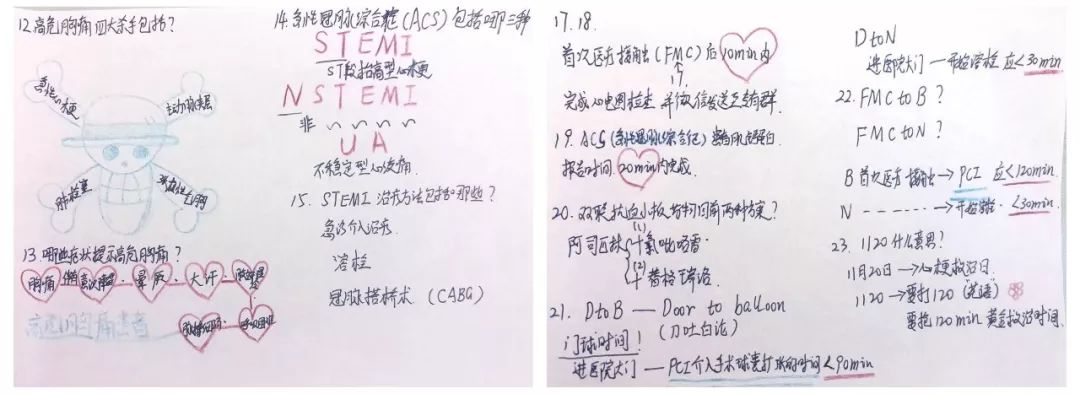 12.高危胸痛四大杀手包括？
急性心梗
主动脉夹层
肺栓塞
张力性气胸
13.哪些症状提示高危胸痛？
胸痛伴 · 晕厥 · 大汗
呼吸困难
高危胸痛患者
14.急性冠脉综合症(ACS)包括哪三种
STEMI
ST段抬高型心梗
NSTEMI
非
UA
不稳定型心绞痛
15. STEMI治疗方法包括哪些？
急诊介入治疗
溶栓
冠脉搭桥术 (CABG)
17.18.
首次医疗接触(FMC)后10min内
完成心电图检查 并微信发送至专有群.
19. ACS(急性冠脉综合征)肌钙蛋白
报告时间.20min内完成
20. 双联抗血小板药物目前两种方案？
(1)
阿司匹林 + 氯吡格雷
(2)
+ 替格瑞洛
21. DtoB — Door to balloon
门球时间！
(刀吐白浪)
进医院大门 — PCI介入手术球囊打张的时间<90min
DtoN
进医院大门 — 开始溶栓 应<30min
22. FMC to B？
FMC to N？
B 首次医疗接触 → PCI 应<120min.
N - - - - - - → 开始溶栓 · <30min.
23. 1120什么意思？
11月20日 → 心梗救治日.
1120 → 要打120
要抢120min黄金救治时间.